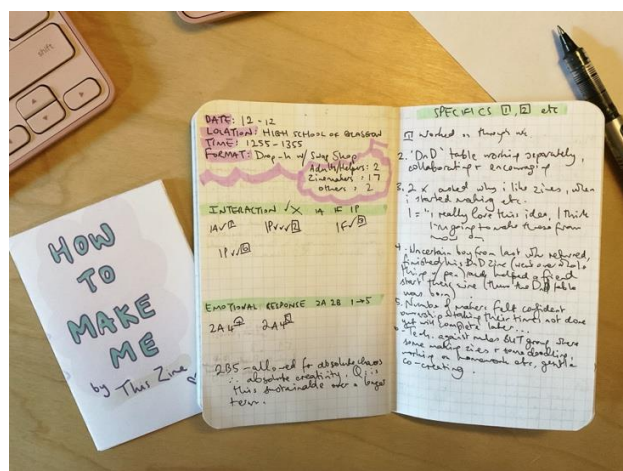 shift
HOW
TO
MAKE
ME
by This Zine
DATE: 12-12
LOCATION: HIGH SCHOOL OF GLASGOW
TIME: 1255-1355
FORMAT: Drop-In w/ Swap Shop
Adults/Helpers: 2
Zinemakers: 17
others: 2
INTERACTION ✓ X 1A 1F 1P
EMOTIONAL RESPONSE 2A 2B 1→5
2B5 - allowed for absolute chaos
∴ absolute creativity. Q: is
this sustainable over a longer
term.
SPECIFICS 1, 2 etc
1 Worked through
2. 'DnD' table working separately,
collaborating + encouraging
3. 2 x asked why i like zines, when
started making etc.
1 = "i really love this idea, I think
I'm going to make these from
now on
4. Uncertain boy from last who returned,
finished his DnD zine
thing helped a friend
start their zine (then the DnD table
was born)
5. Number of makers felt confident
ownership + taking their time, not done
yet will complete later...
6. Tech. against rules BUT group where
some making zines + some doodling,
working on homework etc, gentle
co-creating.